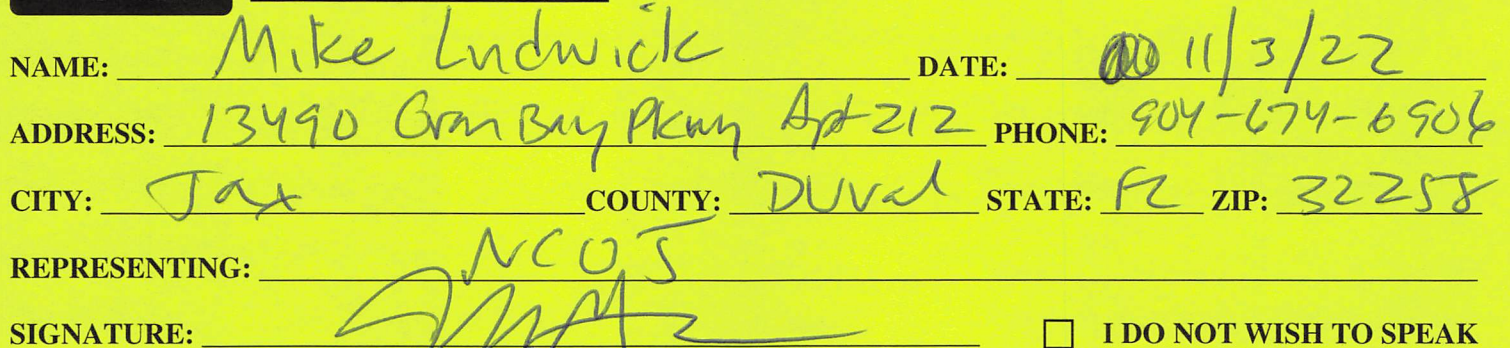 NAME: Mike Ludwick DATE: 11/3/22
ADDRESS: 13490 Gran Bay Pkwy Apt 212 PHONE: 904-674-6906
CITY: Jax COUNTY: DUval STATE: FL ZIP: 32258
REPRESENTING: NCOJ
SIGNATURE: ☐ I DO NOT WISH TO SPEAK